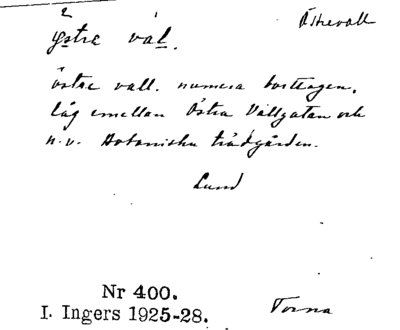 Östervall
östre vál.
östre vall. numera borttagen,
låg emellan Östra Vallgatan och
n.v. Botaniska trädgården.
Lund
Nr 400.
I. Ingers 1925-28.
Torna